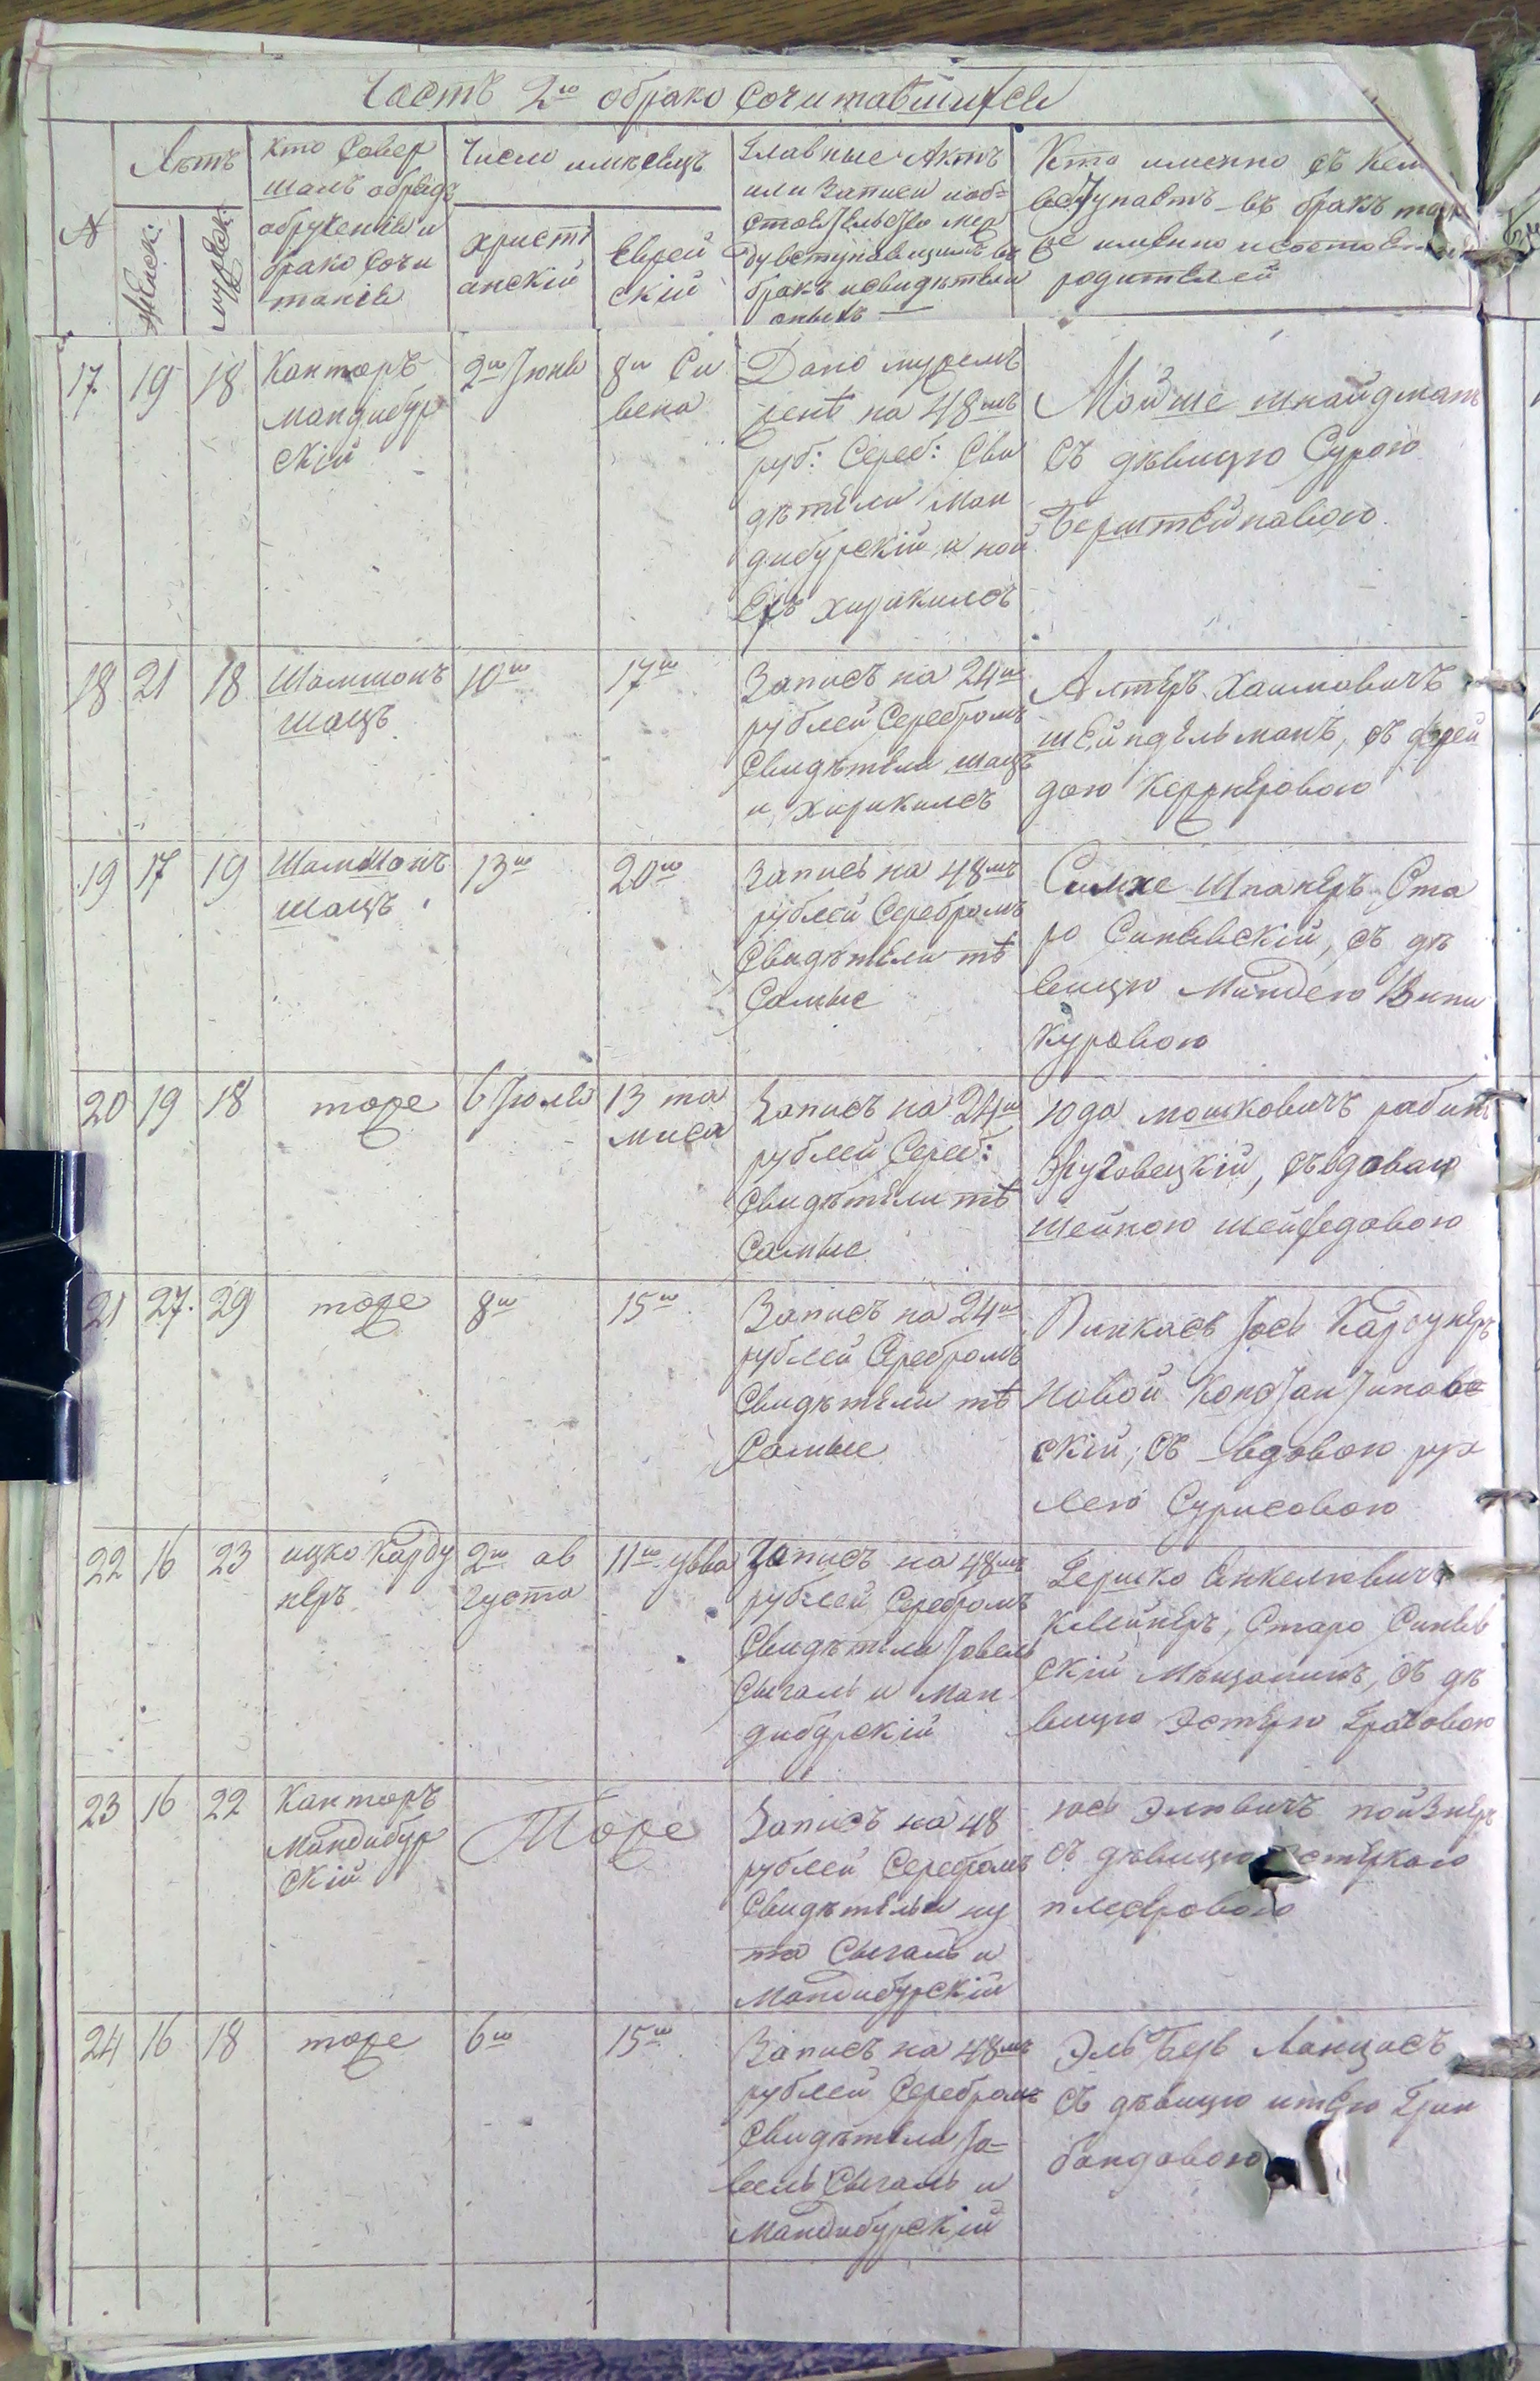 Часть 2ю обрако сочитавшихся
№
Лѣтъ
Женск:
мужеск:
Кто Совер
шалъ обрядъ
обрученія и
брако Сочи
танія
Число имѣсяцъ
христі
анскій
Еврей
скій
Главные Актъ
или Записи иоб=
стоятельство меж
ду вступающимъ въ
бракъ исвидѣтели
оныхъ —
Кто именно съ кем
вступаетъ въ бракъ
именно исостоя
родителей
17
19
18
Канторъ
мандибур
скій
2ю Іюня
8ю Си
вена
Дано мужемъ
женѣ на 48мъ
руб: Сереб: Сви
дѣтели Ман
дибурскій и ной
ехъ хиракисъ
Мойше шнайдманъ
съ дѣвицю Сурою
Берштейнавою
18
21
18
Шамшонъ
шацъ
10ю
17ю
Запись на 24ю
рублей Серебромъ
Свидѣтели шацъ
и хиракилсъ
Алтеръ Хаимовичъ
шейндельманъ, съ фрей
дою Кержнеровою
19
17
19
Шамшонъ
шацъ
13ю
20ю
Запись на 48мъ
рублей Серебромъ
Свидѣтели тѣ
Самые
Симхе Шпанеръ Ста
ро Синявскій, съ дѣ
вицю Миндею Вини
куровою
20
19
18
тоже
6 Іюля
13 та
миса
Запись на 24ю
рублей Сереб:
Свидѣтели тѣ
Самые
юда мошковичъ рабин
съ вдовою
шейною шейфедовою
21
27.
29
тоже
8ю
15ю
Запись на 24ю
рублей Серебромъ
Свидѣтели тѣ
Самые
Пинкасъ Іось Кардунеръ
Новой Константинов=
скій, съ вдовою рух
лею Сурисовою
22
16
23
ицко Карду
неръ
2ю ав
густа
11ю увва
Запись на 48мъ
рублей Серебромъ
Свидѣтели Іовель
Сыгаль и ман
дибурскій
Гершко Янкелювичъ
Клейнеръ, Старо Синяв
скій мѣщанинъ, съ дѣ
вицю Эстерю Граховою
23
16
22
Канторъ
Мандибур
скій
Тоже
Запись на 48
рублей Серебромъ
Свидѣтели ну
та Сыгаль и
Мандибурскій
юсь Элювичъ пойзнеръ
съ дѣвицю
плесеровою
24
16
18
тоже
6ю
15ю
Запись на 48мъ
рублей Серебромъ
Свидѣтели Іо=
вель Сыгаль и
Мандибурскій
Эль Беръ Ланцисъ
съ дѣвицю итею Грин
бандовою